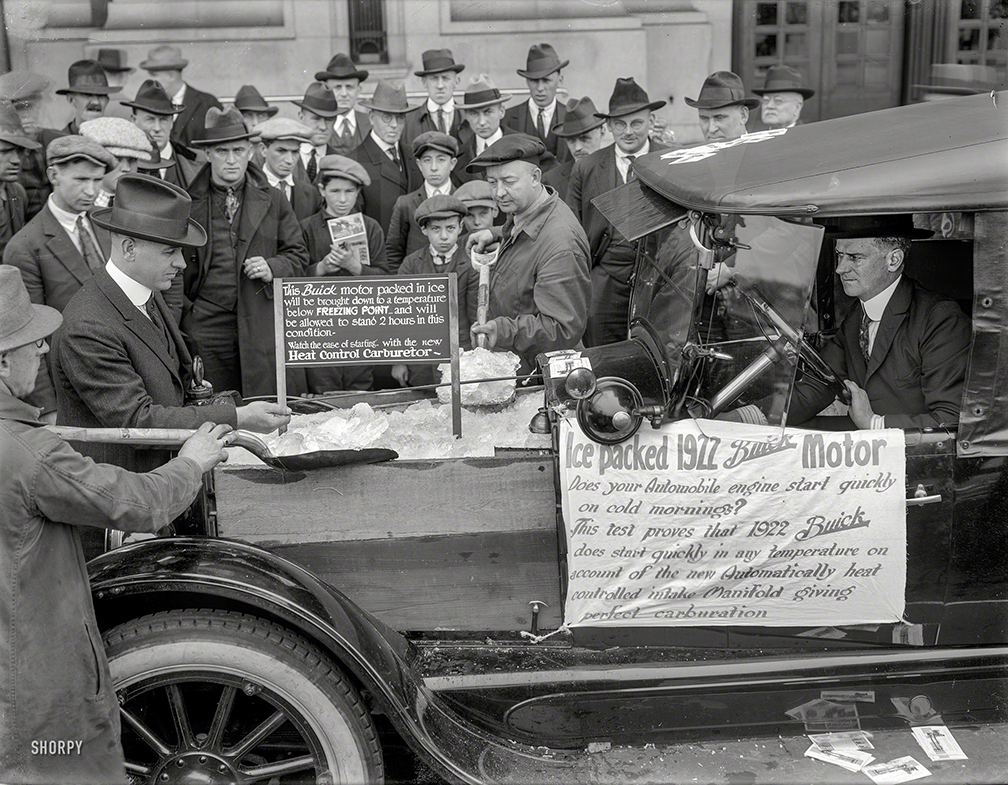 This Buick motor packed in ice
will be brought down to a temperature
below FREEZING POINT and will
be allowed to stand 2 hours in this
condition-
Watch the ease of starting with the new
Heat Control Carburetor-
Ice packed 1922 Buick Motor
Does your Automobile engine start quickly
on cold mornings?
This test proves that 1922 Buick
does start quickly in any temperature on
account of the new Automatically heat
controlled intake Manifold giving
perfect carburation
SHORPY